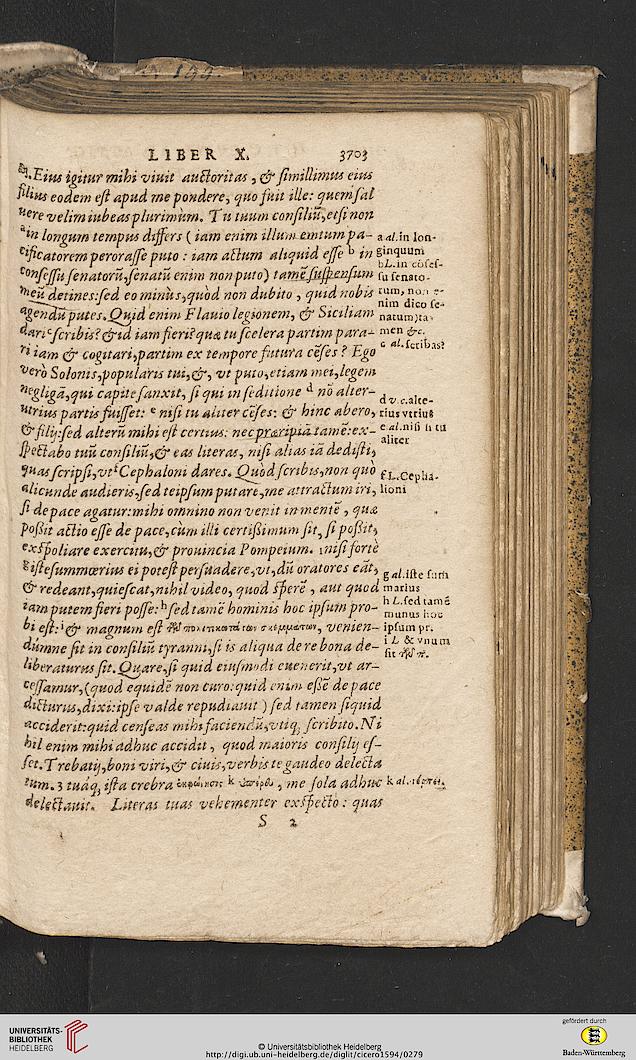 LIBER X. 3703
Eius igitur mihi viuit auctoritas, & simillimus eius
filius eodem est apud me pondere, quo fuit ille: quem sal
uere velim iubeas plurimùm. Tu tuum consiliū, etsi non
a in longum tempus differs (iam enim illum emtum pa-
cificatorem perorasse puto: iam actum aliquid esse b in
consessu senatorū, senatū enim non puto) tamē suspensum
meū detines: sed eo minùs, quòd non dubito, quid nobis
agendū putes. Quid enim Flauio legionem, & Siciliam
dari c scribis? & id iam fieri? quæ tu scelera partim para-
ri iam & cogitari, partim ex tempore futura cēses? Ego
verò Solonis, popularis tui, &, vt puto, etiam mei, legem
negligā, qui capite sanxit, si qui in seditione d nō alter-
utrius partis fuisset: e nisi tu aliter cēses: & hinc abero,
& filij: sed alterū mihi est certius: nec præripiā tamē: ex-
spectabo tuū consiliū, & eas literas, nisi alias iā dedisti,
quas scripsi, vt f Cephaloni dares. Quòd scribis, non quò
alicunde audieris, sed teipsum putare, me attractum iri,
si de pace agatur: mihi omnino non venit in mentē, quæ
poßit actio esse de pace, cùm illi certißimum sit, si poßit,
exspoliare exercitu, & prouincia Pompeium. nisi fortè
g iste summœrius ei potest persuadere, vt, dū oratores eāt,
& redeant, quiescat, nihil video, quod sperē, aut quod
iam putem fieri posse: h sed tamē hominis hoc ipsum pro-
bi est: i & magnum est τῶν πολιτικοτάτων σκεμμάτων, venien-
dúmne sit in consiliū tyranni, si is aliqua de re bona de-
liberaturus sit. Quare, si quid eiusmodi euenerit, vt ar-
cessamur, (quod equidē non curo: quid enim essē de pace
dicturus, dixi: ipse valde repudiauit) sed tamen siquid
acciderit: quid censeas mihi faciendū, vtiq; scribito. Ni
hil enim mihi adhuc accidit, quod maioris consilij es-
set. Trebatij, boni viri, & ciuis, verbis te gaudeo delecta
tum. 3 tuáq; ista crebra ἐκφώνησις k ὑπέρευ, me sola adhuc
delectauit. Literas tuas vehementer exspecto: quas
S 2
a al. in lon-
ginquum
b L. in cōses-
su senato-
rum, non e-
nim dico se-
natum) ta-
men &c.
c al. scribas?
d v.c. alte-
rius vtrius
e al. nisi si tu
aliter
f L. Cepha-
lioni
g al. iste
marius
h L. sed tamē
munus hoc
ipsum pr.
i L & vnum
sit τῶν π.
k al.
UNIVERSITÄTS-
BIBLIOTHEK
HEIDELBERG
© Universitätsbibliothek Heidelberg
http://digi.ub.uni-heidelberg.de/diglit/cicero1594/0279
gefördert durch
Baden-Württemberg